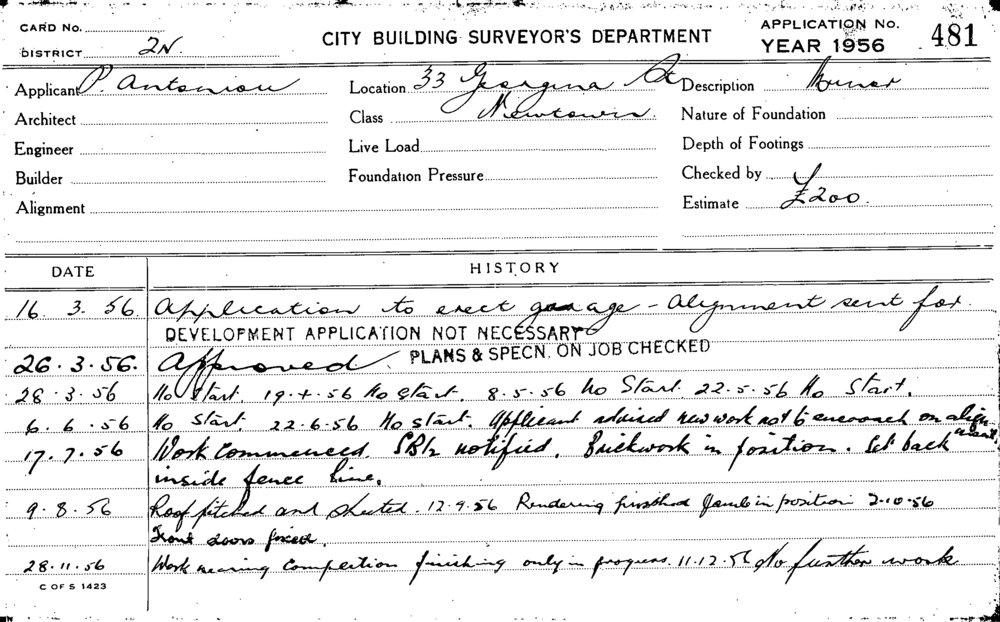 CARD No.
DISTRICT 2N.
CITY BUILDING SURVEYOR'S DEPARTMENT
APPLICATION No.
YEAR 1956
481
Applicant P. Antoniou
Location 33 Georgina St
Description Minor
Architect
Class Newtown.
Nature of Foundation
Engineer
Live Load
Depth of Footings
Builder
Foundation Pressure
Checked by
Alignment
Estimate £200.
DATE
HISTORY
16. 3. 56. Application to erect garage - Alignment sent for.
DEVELOPMENT APPLICATION NOT NECESSARY
26.3.56. Approved. PLANS & SPECN. ON JOB CHECKED
28.3.56 No Start. 19.4.56 No Start. 8.5.56 No Start. 22.5.56 No Start.
6.6.56 No Start. 22.6.56 No start. Applicant advised new work not to encroach on align-
ment.
17.7.56 Work commenced. notified. Brickwork in position. Set back
inside fence line.
9.8.56 Roof pitched and sheeted. 12.9.56 Rendering finished in position 2.10.56
Front doors fixed.
28.11.56 Work nearing completion finishing only in progress. 11.12.56 No further work
C OF S 1423